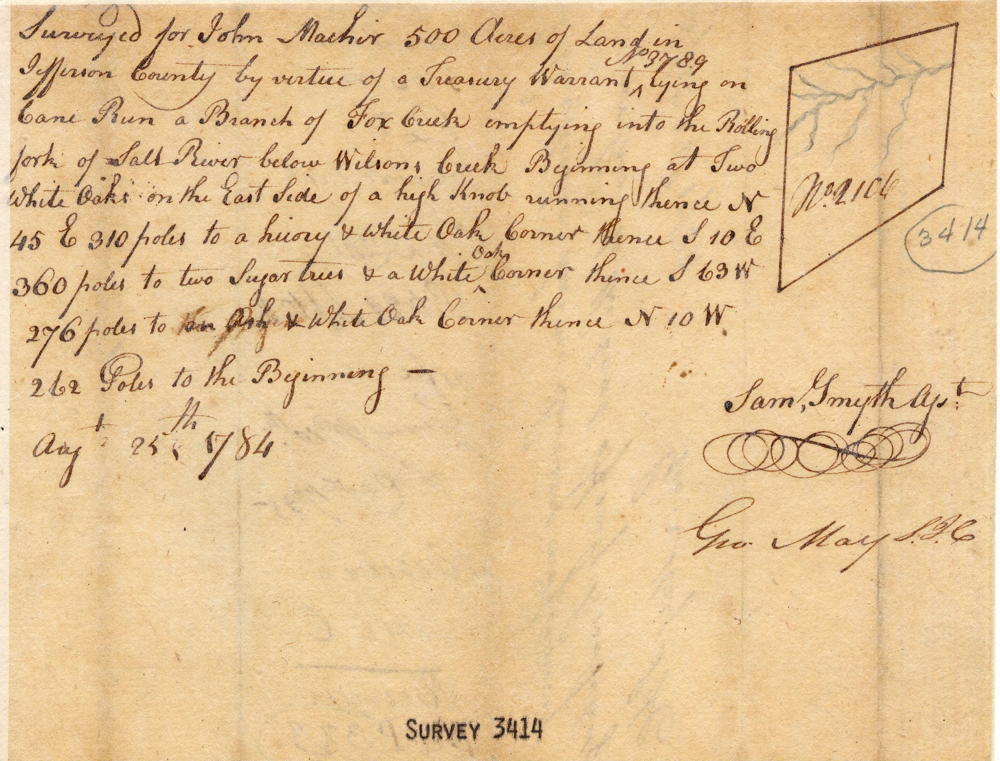 Surveyed for John Machir 500 Acres of Land in
Jefferson County by virtue of a Treasury Warrant ^ No 3789 lying on
Cane Run a Branch of Fox Creek emptying into the Rolling
fork of Salt River below Wilsons Creek Beginning at Two
White Oaks on the East Side of a high Knob running thence N
45 E 310 poles to a hicory & White Oak Corner thence S 10 E
360 poles to two Sugar trees & a White ^ Oak Corner thence S 63 W
276 poles to an Ash & White Oak Corner thence N 10 W
262 Poles to the Beginning —
Augt 25th 1784
Saml. Smyth Ast.
Geo. May S.J.C
No. 2106
3414
SURVEY 3414